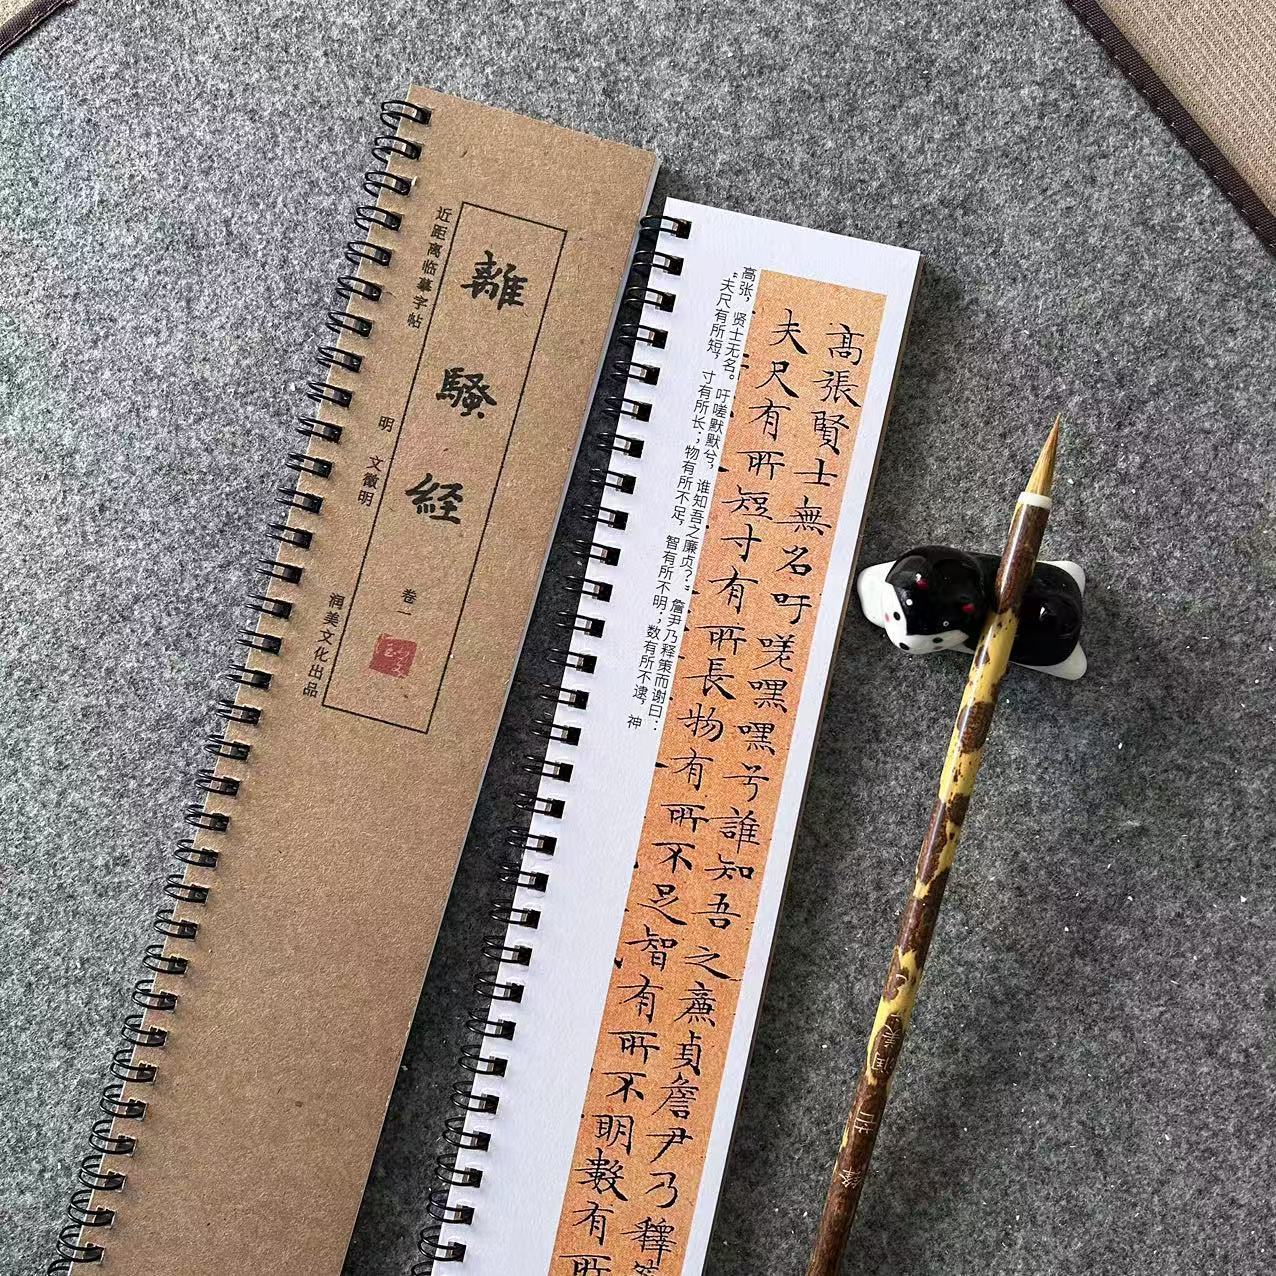 近距离临摹字帖
離騷経
明 文徵明
卷一
润美文化出品
高张，贤士无名。吁嗟默默兮，谁知吾之廉贞？”詹尹乃释策而谢曰：
“夫尺有所短，寸有所长；物有所不足，智有所不明；数有所不逮，神
高張賢士無名吁嗟嘿嘿兮誰知吾之廉貞詹尹乃釋
夫尺有所短寸有所長物有所不足智有所不明數有所